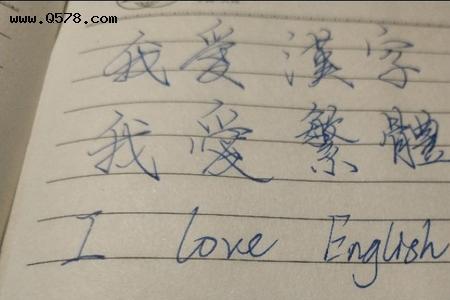 www.Q578.com
我爱漢字
我愛繁體
I love English